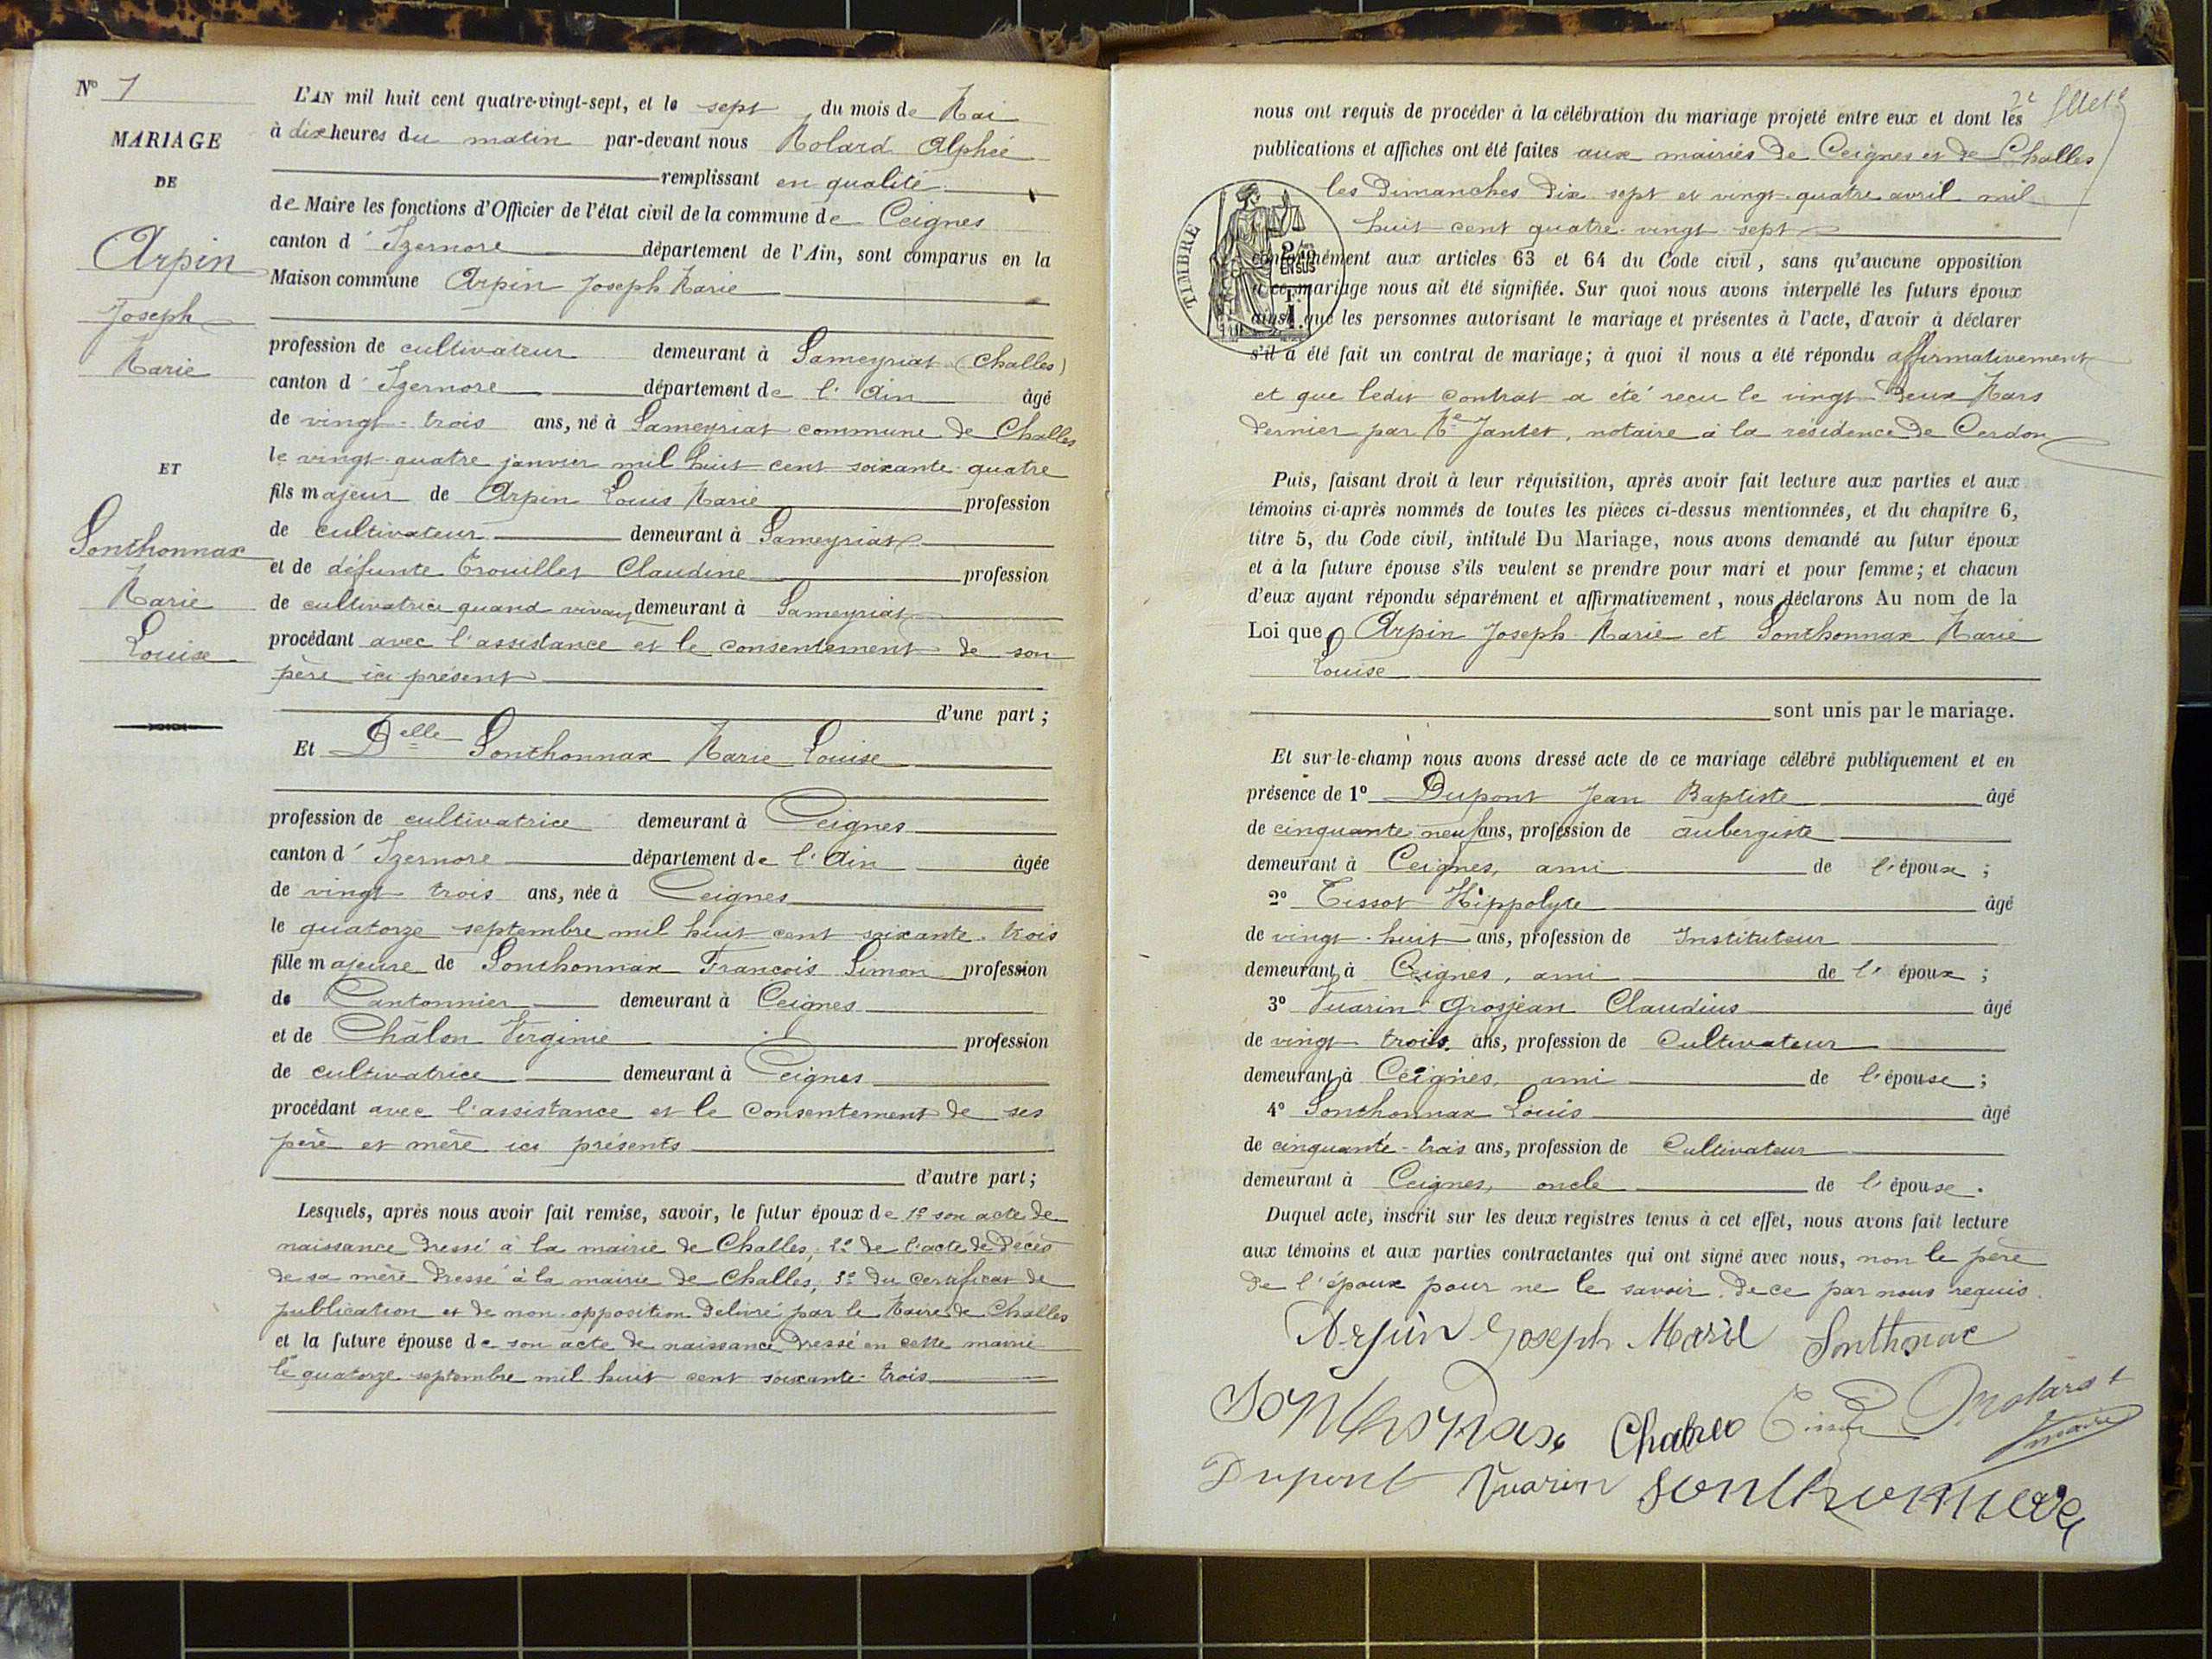 No 1
MARIAGE
DE
Arpin
Joseph
Marie
ET
Sonthonnax
Marie
Louise
L'AN mil huit cent quatre-vingt-sept, et le sept du mois de Mai
à dix heures du matin par-devant nous Molard Alphée
remplissant en qualité
de Maire les fonctions d'Officier de l'état civil de la commune de Ceignes
canton d'Izernore département de l'Ain, sont comparus en la
Maison commune Arpin Joseph Marie
profession de cultivateur demeurant à Sameyriat (Challes)
canton d'Izernore département de l'Ain âgé
de vingt-trois ans, né à Sameyriat commune de Challes
le vingt-quatre janvier mil huit cent soixante-quatre
fils majeur de Arpin Louis Marie profession
de cultivateur demeurant à Sameyriat
et de défunte Trouillet Claudine profession
de cultivatrice quand vivait demeurant à Sameyriat
procédant avec l'assistance et le consentement de son
père ici présent
d'une part ;
Et Delle Sonthonnax Marie Louise
profession de cultivatrice demeurant à Ceignes
canton d'Izernore département de l'Ain âgée
de vingt trois ans, née à Ceignes
le quatorze septembre mil huit cent soixante-trois
fille majeure de Sonthonnax François Simon profession
de Cantonnier demeurant à Ceignes
et de Châlon Virginie profession
de cultivatrice demeurant à Ceignes
procédant avec l'assistance et le consentement de ses
père et mère ici présents
d'autre part ;
Lesquels, après nous avoir fait remise, savoir, le futur époux de 1o son acte de
naissance dressé à la mairie de Challes, 2o de l'acte de décès
de sa mère dressé à la mairie de Challes, 3o du certificat de
publication et de non-opposition délivré par le Maire de Challes
et la future épouse de son acte de naissance dressé en cette mairie
le quatorze septembre mil huit cent soixante-trois
nous ont requis de procéder à la célébration du mariage projeté entre eux et dont les
publications et affiches ont été faites aux mairies de Ceignes et de Challes
les Dimanches dix sept et vingt-quatre avril mil
huit cent quatre-vingt-sept
TIMBRE
conformément aux articles 63 et 64 du Code civil, sans qu'aucune opposition
à ce mariage nous ait été signifiée. Sur quoi nous avons interpellé les futurs époux
ainsi que les personnes autorisant le mariage et présentes à l'acte, d'avoir à déclarer
s'il a été fait un contrat de mariage; à quoi il nous a été répondu affirmativement
et que ledit contrat a été reçu le vingt-deux Mars
dernier par Me Jantet, notaire à la résidence de Cerdon
Puis, faisant droit à leur réquisition, après avoir fait lecture aux parties et aux
témoins ci-après nommés de toutes les pièces ci-dessus mentionnées, et du chapitre 6,
titre 5, du Code civil, intitulé Du Mariage, nous avons demandé au futur époux
et à la future épouse s'ils veulent se prendre pour mari et pour femme; et chacun
d'eux ayant répondu séparément et affirmativement, nous déclarons Au nom de la
Loi que Arpin Joseph Marie et Sonthonnax Marie
Louise
sont unis par le mariage.
Et sur-le-champ nous avons dressé acte de ce mariage célébré publiquement et en
présence de 1o Dupont Jean Baptiste âgé
de cinquante neuf ans, profession de aubergiste
demeurant à Ceignes, ami de l'époux ;
2o Tissot Hippolyte âgé
de vingt-huit ans, profession de Instituteur
demeurant à Ceignes, ami de l'époux ;
3o Vuarin-Grosjean Claudius âgé
de vingt trois ans, profession de Cultivateur
demeurant à Ceignes, ami de l'épouse ;
4o Sonthonnax Louis âgé
de cinquante-trois ans, profession de Cultivateur
demeurant à Ceignes, oncle de l'épouse.
Duquel acte, inscrit sur les deux registres tenus à cet effet, nous avons fait lecture
aux témoins et aux parties contractantes qui ont signé avec nous, non le père
de l'époux pour ne le savoir, de ce par nous requis.
Arpin Joseph Marie Sonthonax
Sonthonax Tissot Molard
maire
Dupont Vuarin Sonthonnax